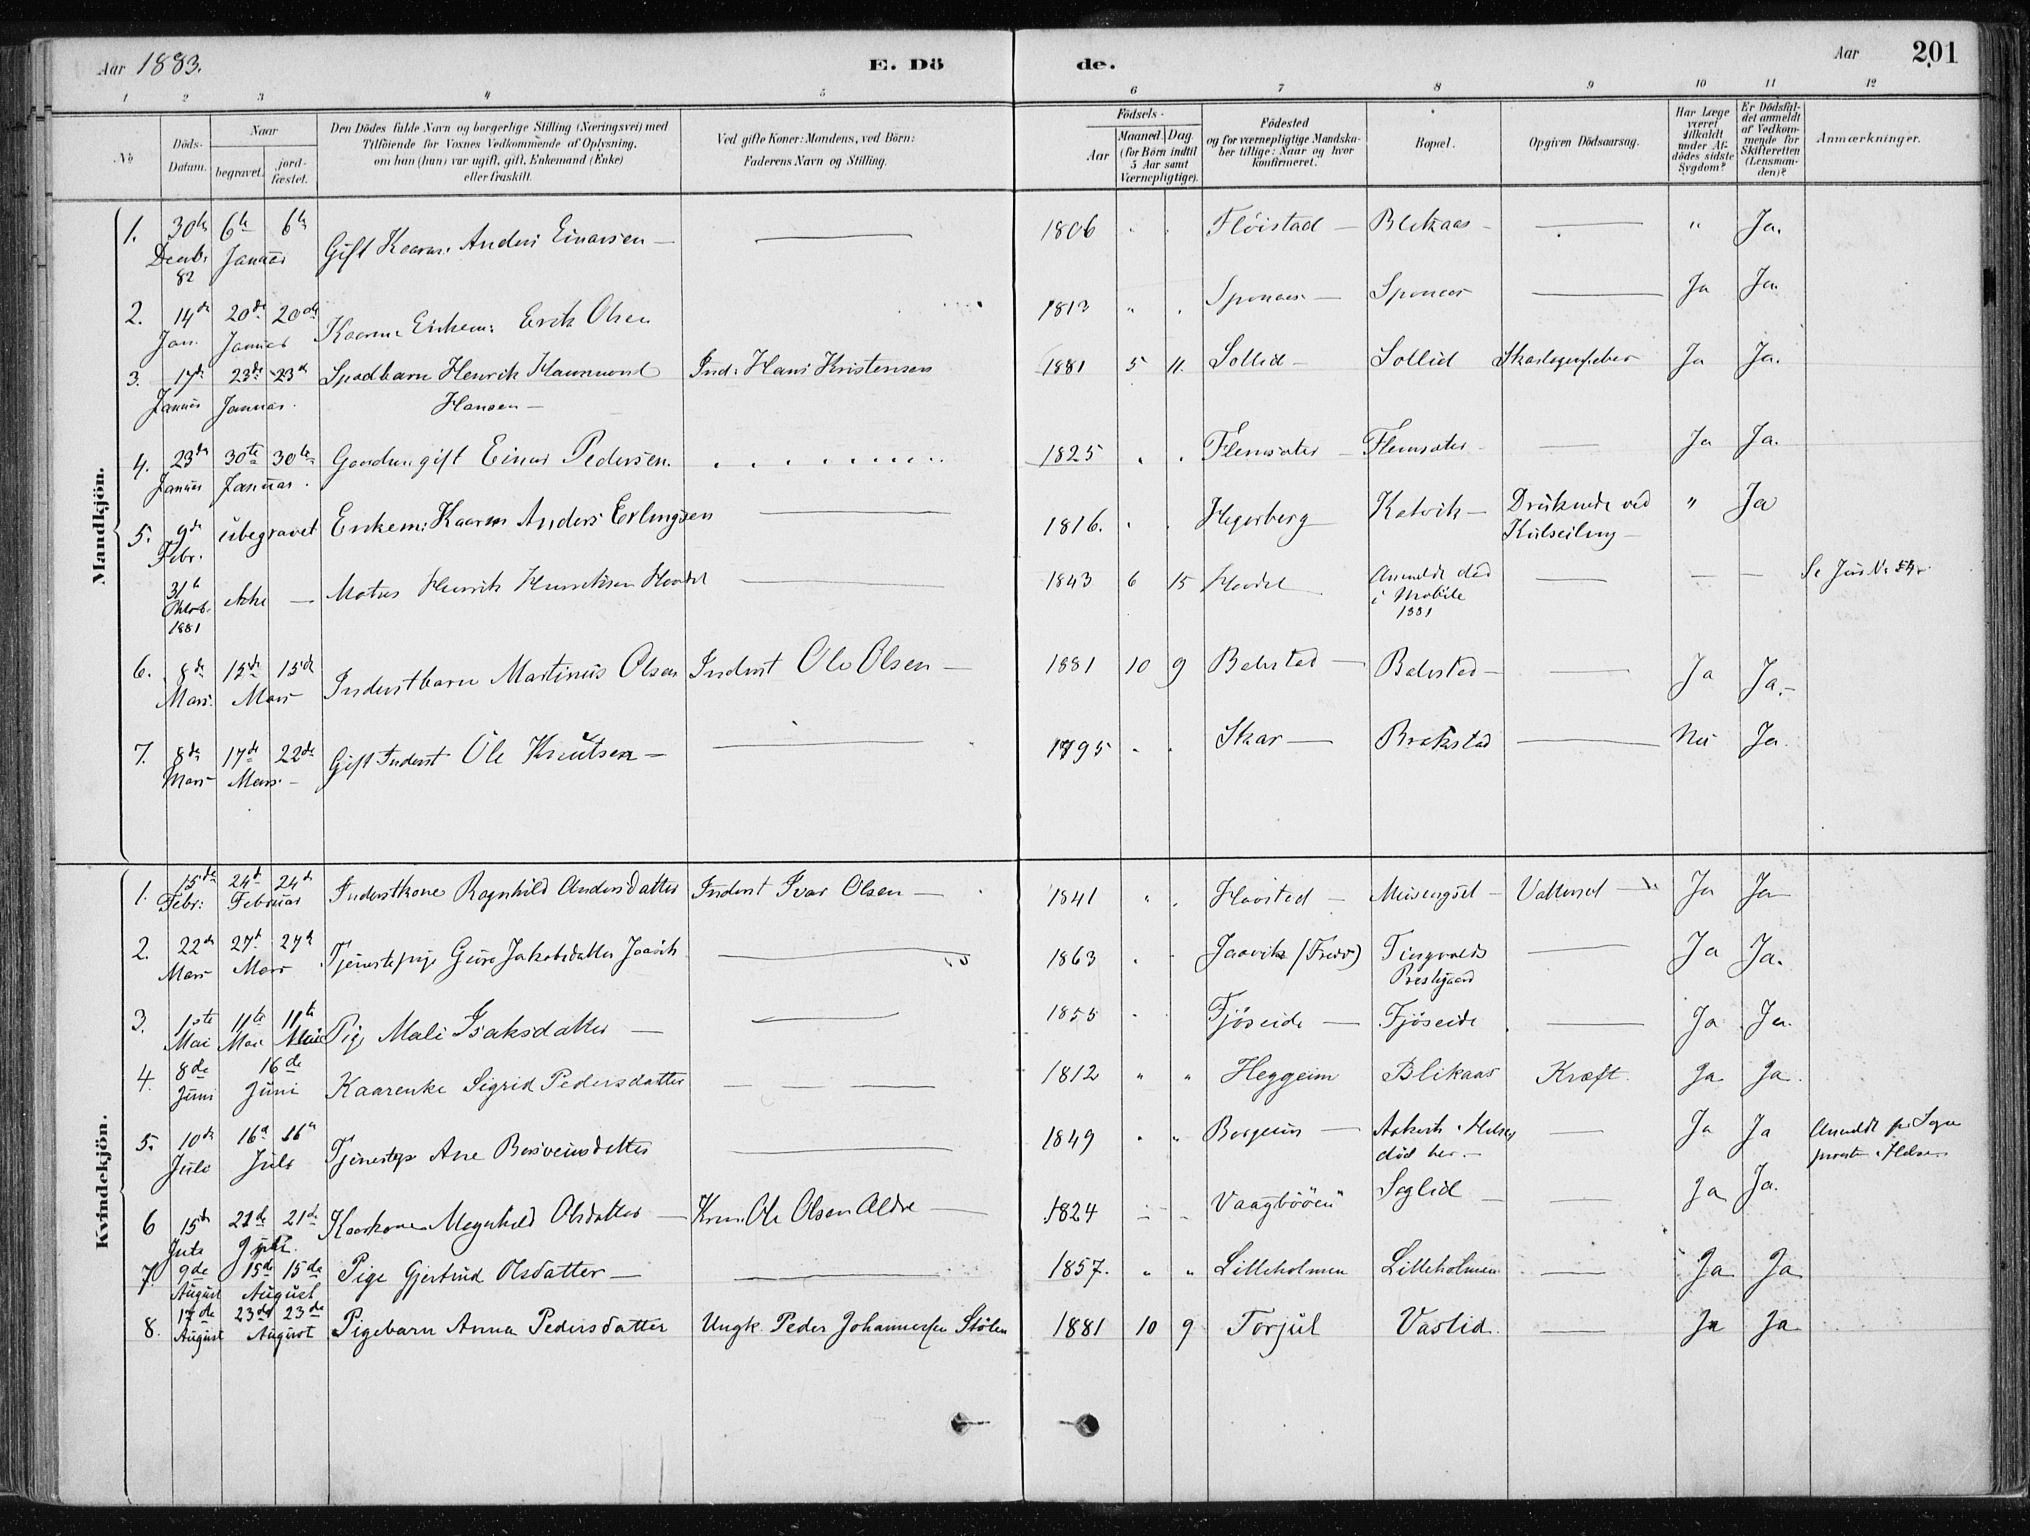 Aar 1883.
E. Dö
de.
Aar
201
1 2 3 4 5 6 7 8 9 10 11 12
No
Döds-Datum.
Naar
begravet.
jord-fæstet.
Den Dödes fulde Navn og borgerlige Stilling (Næringsvei) med
Tilföiende for Voxnes Vedkommende af Oplysning,
om han (hun) var ugift, gift, Enkemand (Enke)
eller fraskilt.
Ved gifte Koner: Mandens, ved Börn:
Faderens Navn og Stilling.
Födsels-
Aar
Maaned Dag
(for Börn indtil
5 Aar samt
Værnepligtige).
Födested
og for værnepligtige Mandska-
ber tillige: Naar og hvor
konfirmeret.
Bopæl.
Opgiven Dödsaarsag.
Har Læge
været
tilkaldt
under Af-
dödes sidste
Sygdom?
Er Dödsfal-
det anmeldt
af Vedkom-
mende for
Skifteretten
(Lensman-
den)?
Anmærkninger.
Mandkjön.
1. 30te 6te 6te Gift Kaarm. Anders Einarsen — 1806 Flöistad — Blikaas — " Ja.
Decbr. Januar
82
2. 14de 20de 20de Kaarm. Enkem: Erik Olsen 1813 " Ja Ja
Jan. Januar
3. 17de 23de 23de Spædbarn Henrik Ind: Hans Kristensen 1881 5 11. Sollid — Sollid Skarlagensfeber Ja Ja.
Januar Januar. Hansen —
4. 23de 30te 30te gift Einar Pedersen. 1825 Flemsæter — Flemsæter — Ja Ja.
Januar Januar.
5. 9de ubegravet Enkem: Kaarm Anders Erlingsen 1816. Katvik — Druknede ved " Ja
Febr. Kulseiling —
31te ikke — Henrik Henriksen 1843 6 15 Anmeldt död — — Se
Oktob. i Mobile
1881 1881
6. 8de 15de 15de Inderstbarn Martinus Olsen Inderst Ole Olsen — 1881 10 9 Ja Ja. —
Mars. Mars
7. 8de 17de 22de Gift Inderst Ole Knutsen — 1795 Skar — Brakstad Nei Ja.
Mars Mars. —
Kvindekjön.
1. 15de 24de 24de Inderstkone Ragnhild Andersdatter Inderst Ivar Olsen — 1841 " Meisingset — Vattersot — Ja Ja
Febr: Februar
2. 22de 27de 27de Tjenestepige Guro Jakobsdatter 1863 Tingvolds Ja Ja.
Mars Mars Prestegaard
3. 1ste 11te 11te Pige Mali Isaksdatter — 1855 Fjöseide — Fjöseide Ja Ja.
Mai Mai Mai
4. 8de 16de Kaarenke Sigrid Pedersdatter 1812 " " Heggeim Blikaas Kræft. Ja Ja.
Juni Juni
5. 10de 16de 16de Ane 1849 " " Ja Ja Anmeldt
Juli Juli död her. —
6 15de 21de 21de Olsdatter — Ole Olsen — 1824 — — Ja Ja.
Juli Juli.
7. 9de 15de 15de Pige Gjertrud Olsdatter — 1857. " " Lilleholmen Lilleholmen Ja Ja
August August
8. 17de 23de 23de Pigebarn Anna Pedersdatter Ungk. Peder Johannessen Stölen 1881 10 9 Torjul Vaslid. Ja Ja
August August